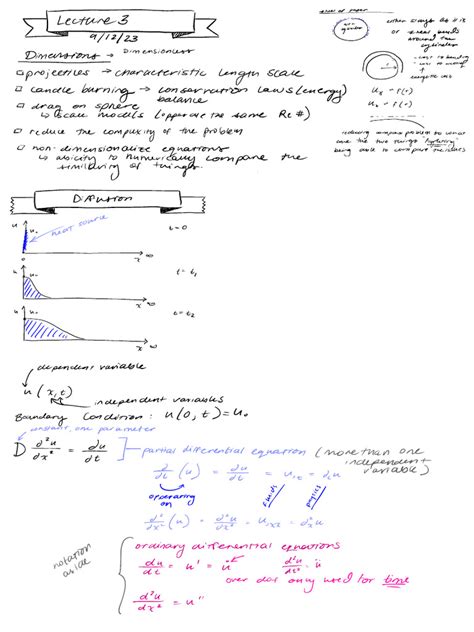 Lecture 3
9/12/23
Dimensions → Dimensionless
projectiles → characteristic length scale
candle burning → conservation laws (energy)
balance
drag on sphere
↳ scale models (operate the same Re #)
reduce the complexity of the problem
non-dimensionalize equations
↳ ability to numerically compare the
similarity of things
either straight as it is
or
around the
cylinder
reducing complex problem to
being able to compare the
Diffusion
heat source
u
u₀
x
∞
t=0
u
u₀
x
∞
t=t₁
u
u₀
x
∞
t=t₂
dependent variable
u(x,t)
independent variables
Boundary Condition: u(0,t)=u₀
constant, one parameter
D d²u/dx² = du/dt
partial differential equation (more than one
independent
variable)
d/dt (u) = du/dt = u,t = dtu
operating
on
fluids
physics
d²/dx² (u) = d²u/dx² = u,xx = d²xu
notation
aside
ordinary differential equations
du/dt = u' = u̇ d²u/dt² = ü
over dot only used for time
d²u/dx² = u''